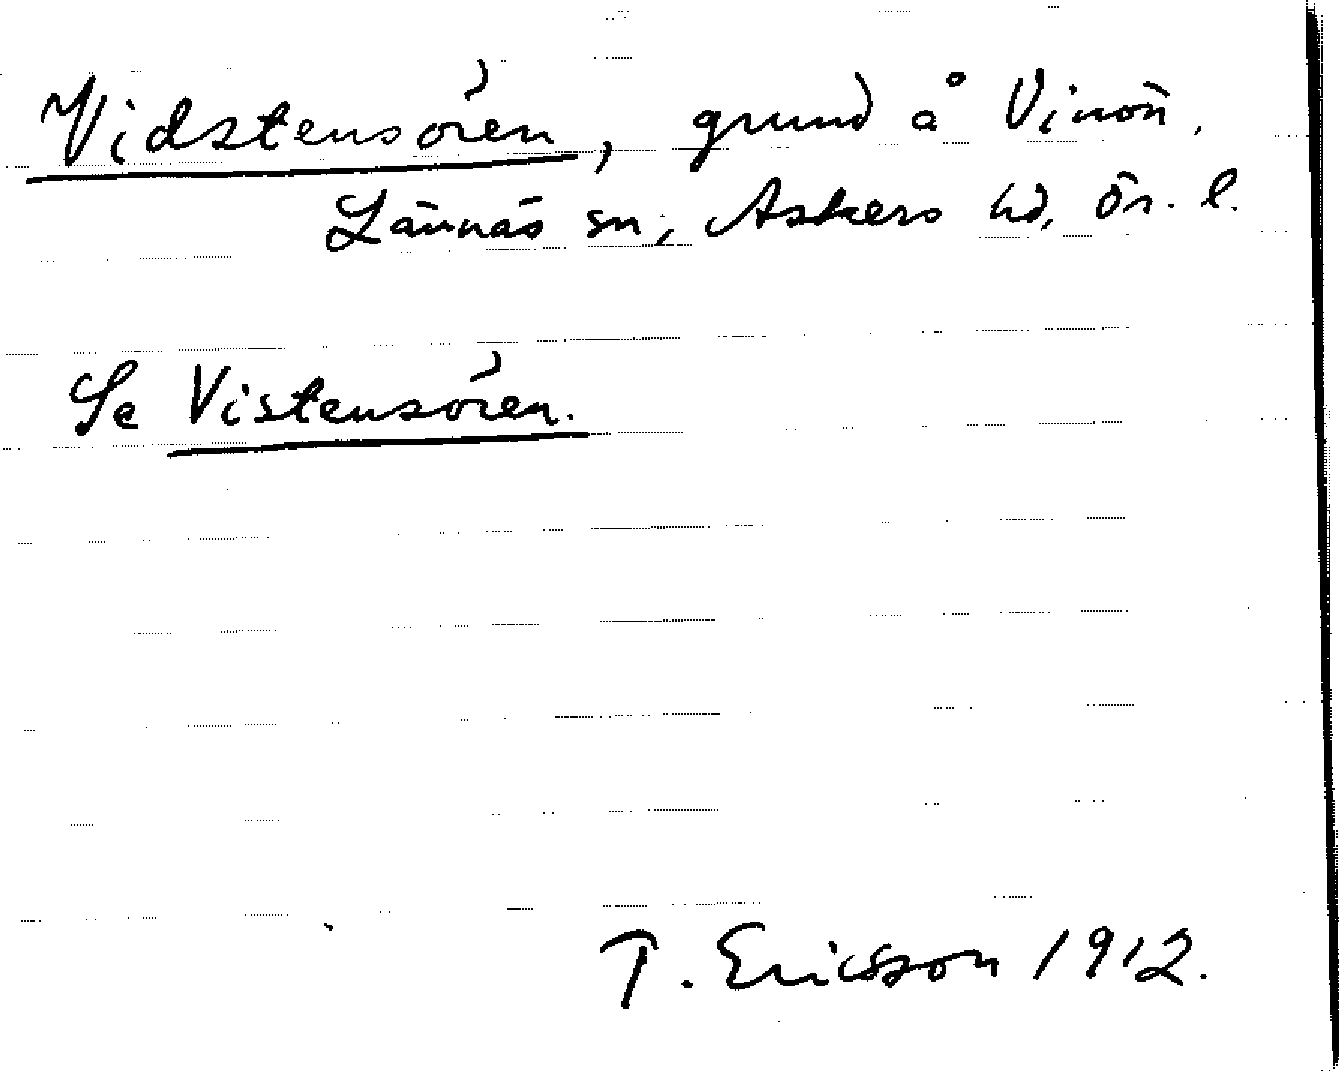 Vidstensören, grund å Vinön,
Lännäs sn, Askers hd, Ör. l.
Se Vistensören.
T. Ericsson 1912.